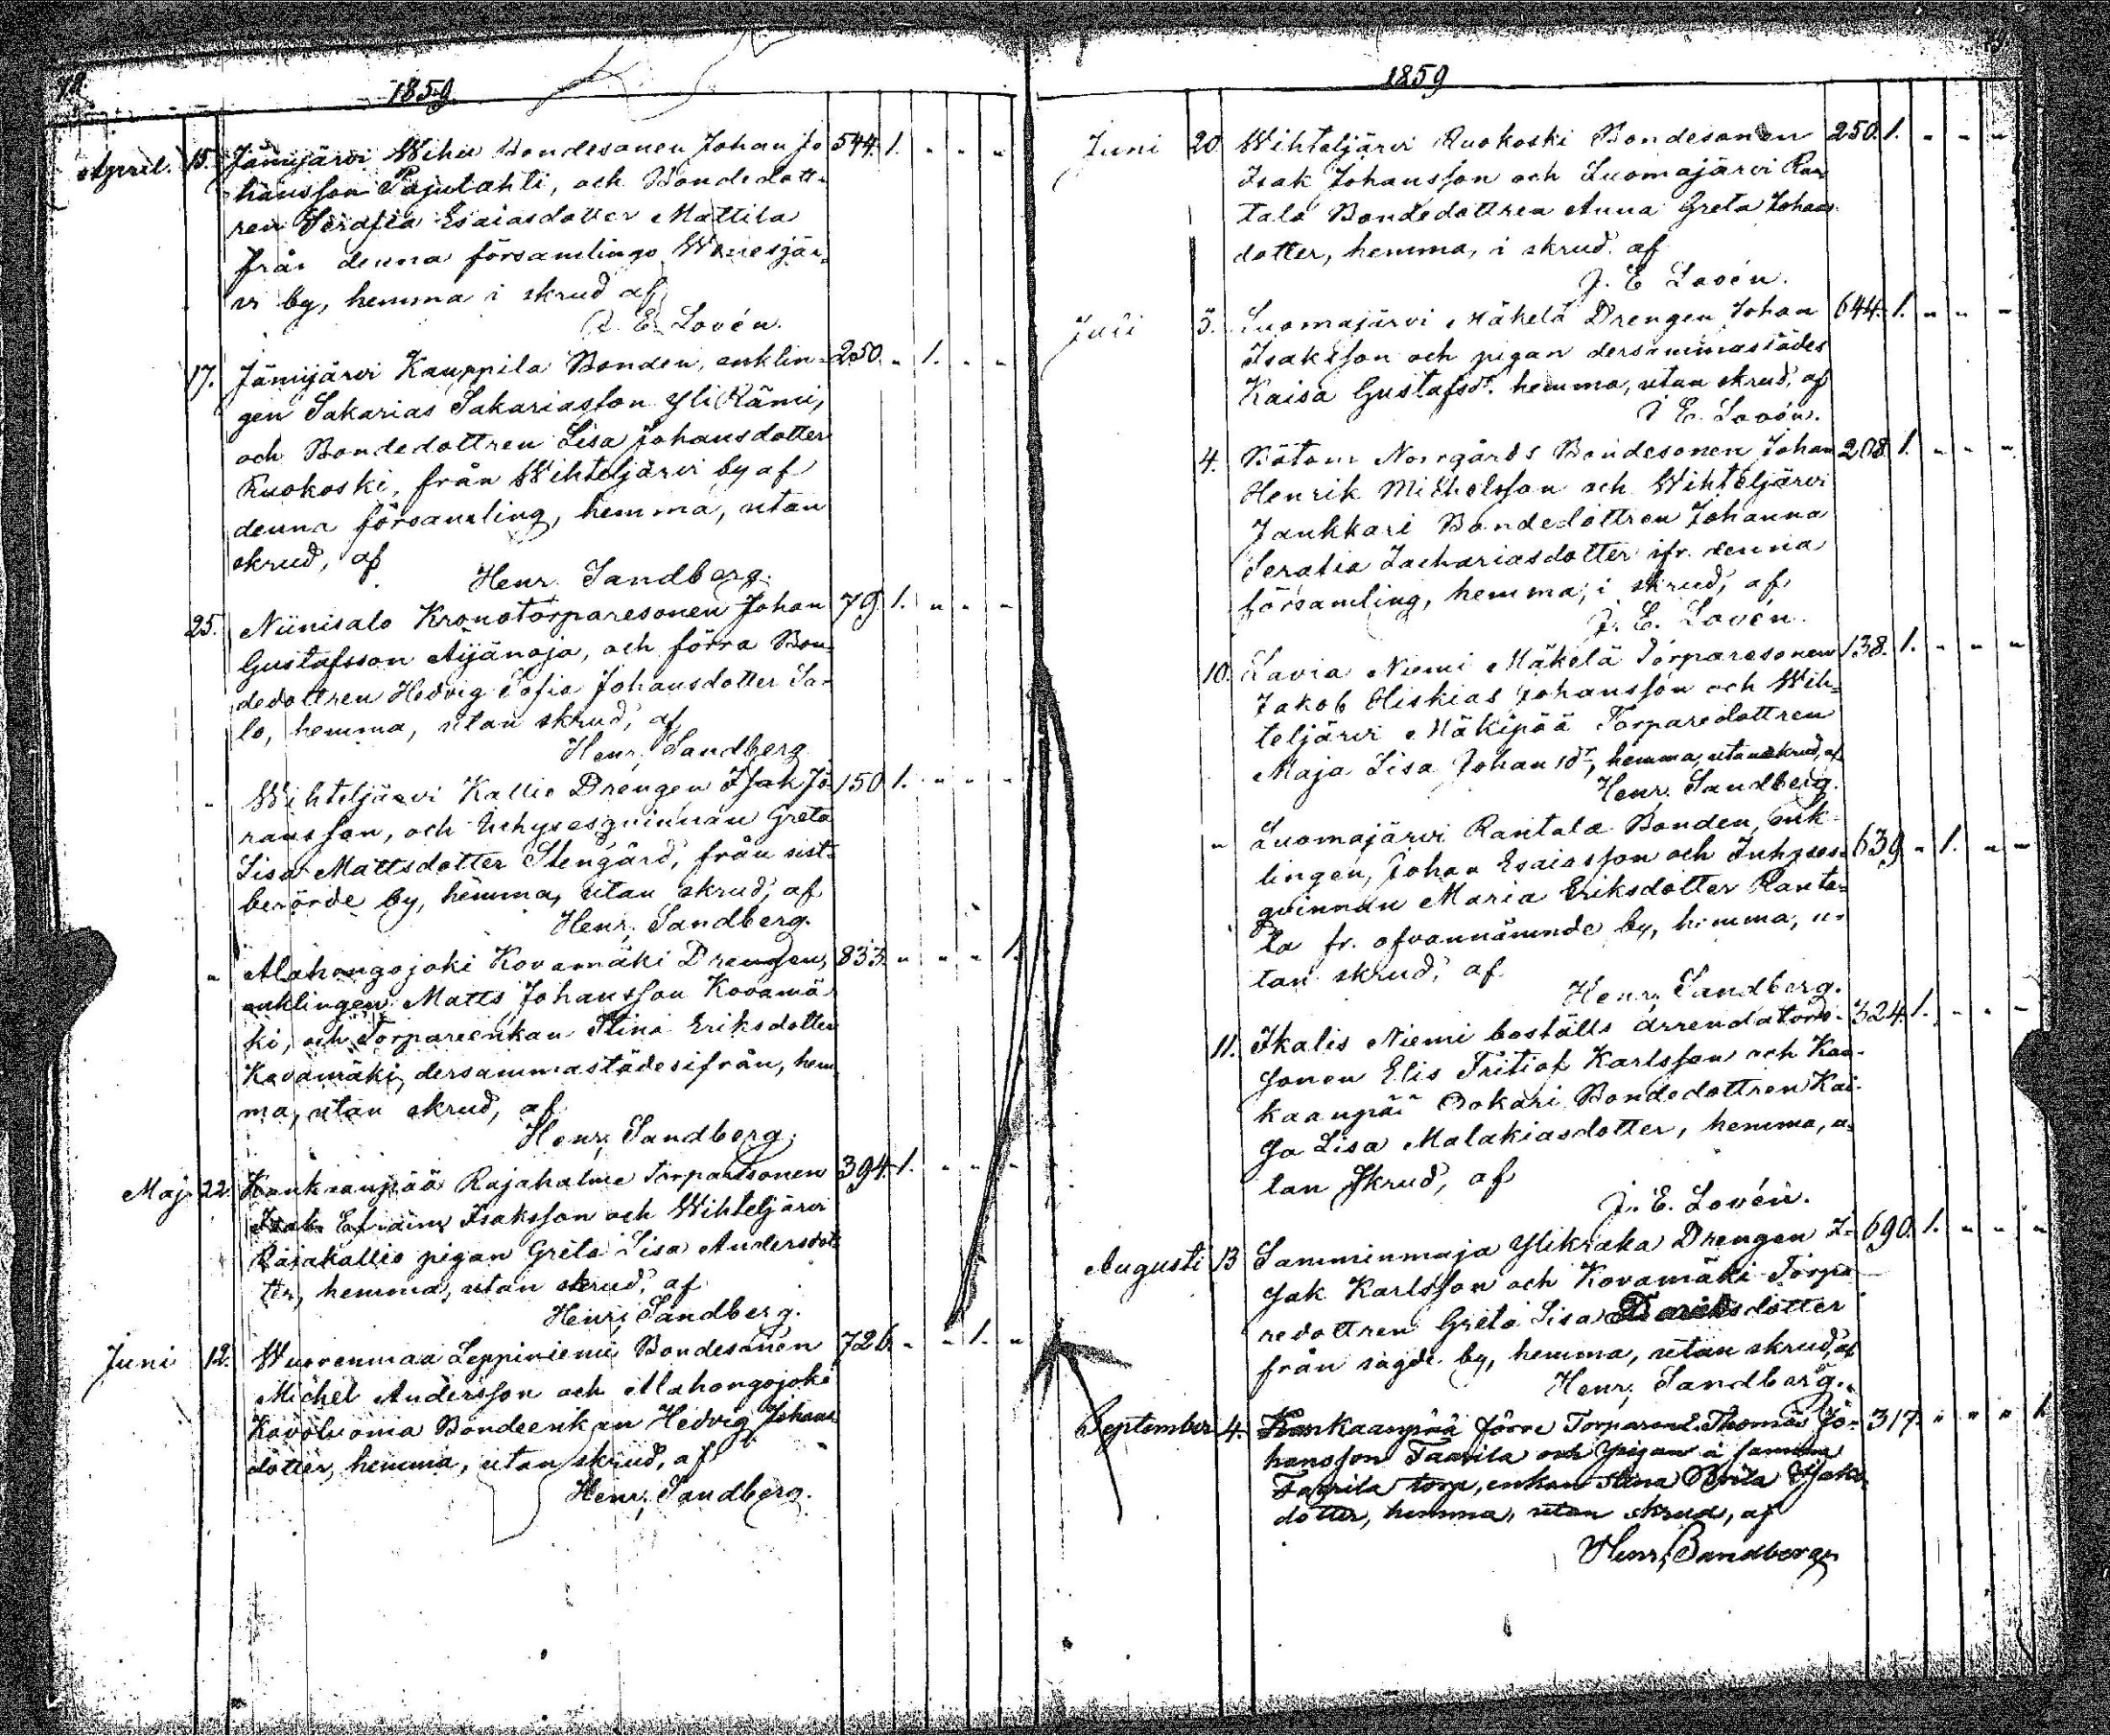 78.
1859
April. 15. Jämijärvi Wihu Bondesonen Johan Jo 544. 1. - - -
hansson Pajulahti, och Bondedott-
ren Serafia Esaiasdotter Mattila
från denna församlings Wenesjär-
vi by, hemma i skrud af
J. E. Lovén.
17. Jämijärvi Kauppila Bonden, enklin- 250. - 1. - -
gen Sakarias Sakariasson Yli Rämi,
och Bondedottren Lisa Johansdotter
Ruokoski, från Wihteljärvi by af
denna församling, hemma, utan
skrud, af
Henr. Sandberg.
25. Niinisalo Kronotorparesonen Johan 79. 1. - - -
Gustafsson Äijänoja, och förra Bon-
dedottren Hedvig Sofia Johansdotter Sa-
lo, hemma, utan skrud, af
Henr. Sandberg
- Wihteljärvi Kallio Drengen Isak Jo- 150 1. - - -
hansson, och Inhysesqvinnan Greta
Lisa Mattsdotter Stengård, från sist-
berörde by, hemma, utan skrud, af
Henr. Sandberg.
- Alahongojoki Kovamäki Drengen, 833. - - - 1.
enklingen Matts Johansson Kovamä-
ki, och Torpareenkan Stina Eriksdotter
Kovamäki, dersammastädesifrån, hem
ma, utan skrud, af
Henr. Sandberg.
Maj 22 Kankaanpää Rajahalme Torparesonen 394. 1. - - -
Isak Efraim Isaksson och Wihteljärvi
Rajakallio pigan Greta Lisa Andersdot
ter, hemma, utan skrud, af
Henr. Sandberg.
Juni 12. Wuorenmaa Leppiniemi Bondesonen 726. - - 1. -
Michel Andersson och Alahongojoki
Bondeenkan Hedvig Johans
dotter, hemma, utan skrud, af
Henr. Sandberg.
1859
Juni 20 Wihteljärvi Ruokoski Bondesonen 250. 1. - - -
Isak Johansson och Luomajärvi Ran
tala Bondedottren Anna Greta Johans
dotter, hemma, i skrud af
J. E. Lovén.
Juli 3. Luomajärvi Mäkelä Drengen Johan 644. 1. - - -
Isaksson och pigan dersammastädes
Kaisa Gustafsdr. hemma, utan skrud, af
J. E. Lovén.
4. Bötom Norrgårds Bondesonen Johan 208. 1. - - -
Henrik Michelsson och Wihteljärvi
Jankkari Bondedottren Johanna
Serafia Zachariasdotter ifr. denna
församling, hemma, i skrud, af
J. E. Lovén.
10. Lavia Niemi Mäkelä Torparesonen 138. 1. - - -
Jakob Hiskias Johansson och Wih-
teljärvi Mäkipää Torparedottren
Maja Lisa Johansdr, hemma, utan skrud, af
Henr. Sandberg.
- Luomajärvi Rantala Bonden, enk- 639 - 1. - -
lingen, Johan Esaiasson och Inhyses-
qvinnan Maria Eriksdotter Ranta-
la fr. ofvannämnde by, hemma, u-
tan skrud, af
Henr. Sandberg.
11. Ikalis Niemi boställs arrendators- 324. 1. - - -
sonen Elis Fritiof Karlsson och Kan-
kaanpää Bondedottren Kai-
sa Lisa Malakiasdotter, hemma, u-
tan skrud, af
J. E. Lovén.
Augusti 13 Samminmaja Ylikraka Drengen I- 690. 1. - - -
sak Karlsson och Kovamäki Torpa
redottren Greta Lisa Davidsdotter
från sagde by, hemma, utan skrud, af
Henr. Sandberg.
September 4. Kankaanpää förre Torparen Thomas Jo- 317. " " " 1.
hansson Taavila och pigan å samma
Taavila torp, enkan Stina Isaks
dotter, hemma, utan skrud, af
Henr. Sandberg